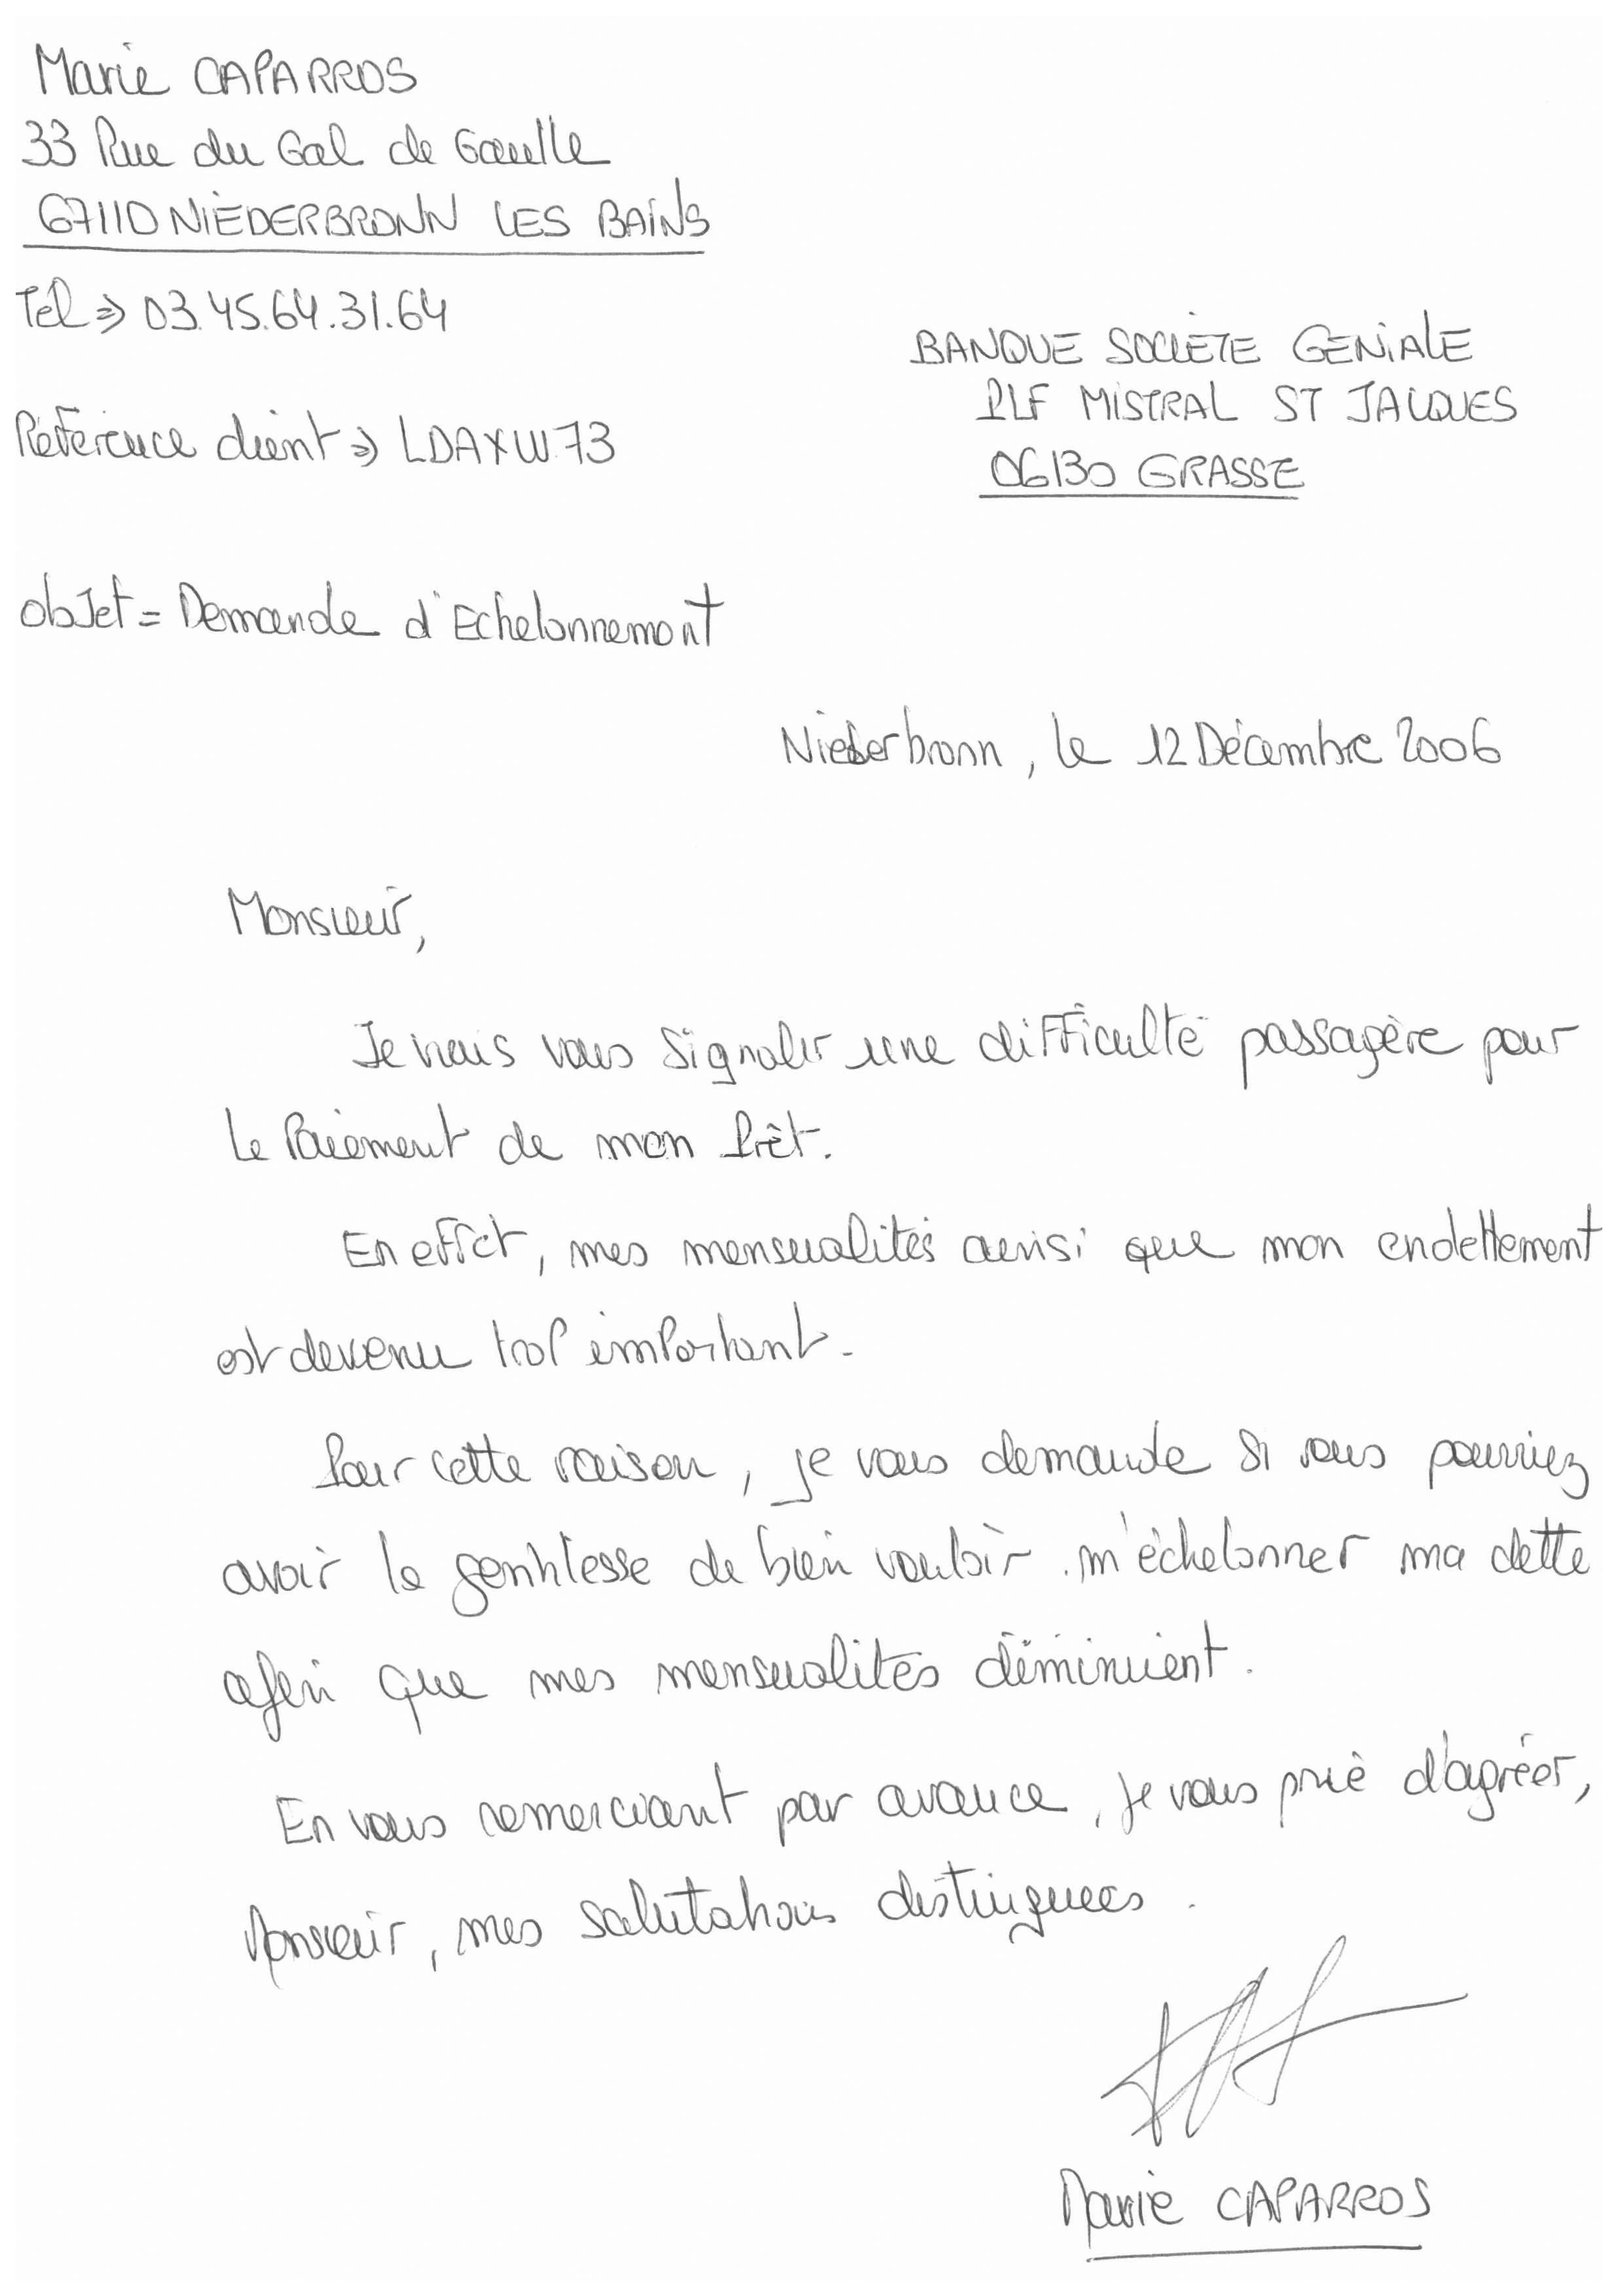 Marie CAPARROS
33 Rue du Gal de Gaulle
67110 NIEDERBRONN LES BAINS
Tél => 03.45.64.31.64
BANQUE SOCIÉTE GENIALE
PLF MISTRAL ST JACQUES
06130 GRASSE
Référence client => LDAXW73
objet = Demande d'Echelonnement
Niederbronn, le 12 Décembre 2006
Monsieur,
Je viens vous signaler une difficulté passagère pour
le Paiement de mon Prêt.
En effet, mes mensualités ainsi que mon endettement
est devenu trop important.
Pour cette raison, je vous demande si vous pourriez
avoir la gentilesse de bien vouloir m'échelonner ma dette
afin que mes mensualités diminuient.
En vous remerciant par avance, je vous prie d'agréer,
Monsieur, mes salutations distinguées.
Marie CAPARROS